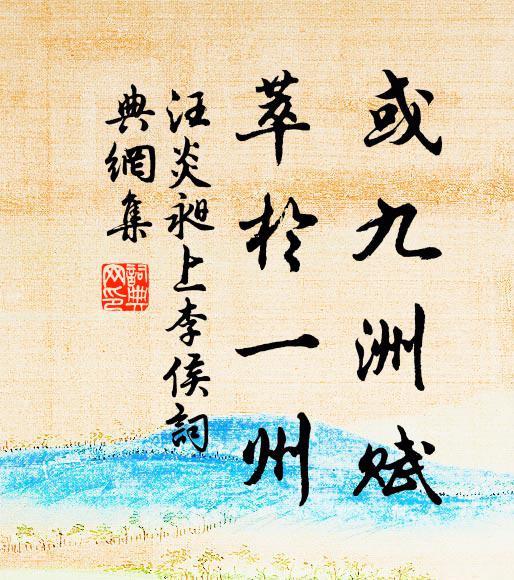 或九洲赋
萃於一州
汪炎昶上李侯詞
典網集
詞典網印